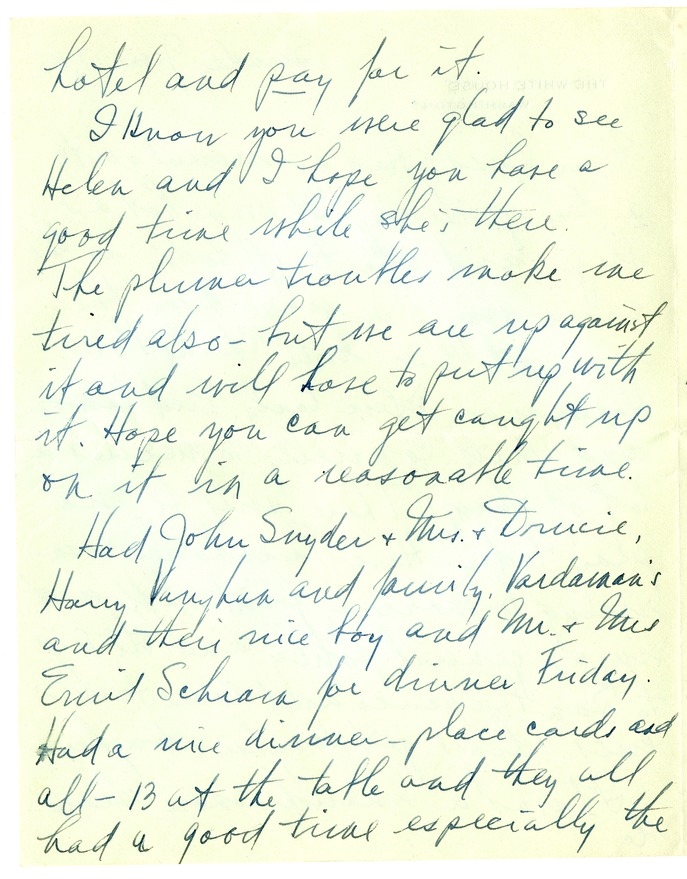 hotel and pay for it.
I know you were glad to see
Helen and I hope you have a
good time while she's there.
The plumer troubles make me
tired also - but we are up against
it and will have to put up with
it. Hope you can get caught up
on it in a reasonable time.
Had John Snyder + Mrs. + Drucie,
Harry Vaughan and family, Vardaman's
and their nice boy and Mr. + Mrs
Emil Schram for dinner Friday.
Had a nice dinner - place cards and
all - 13 at the table and they all
had a good time especially the
THE WHITE HOUSE
WASHINGTON